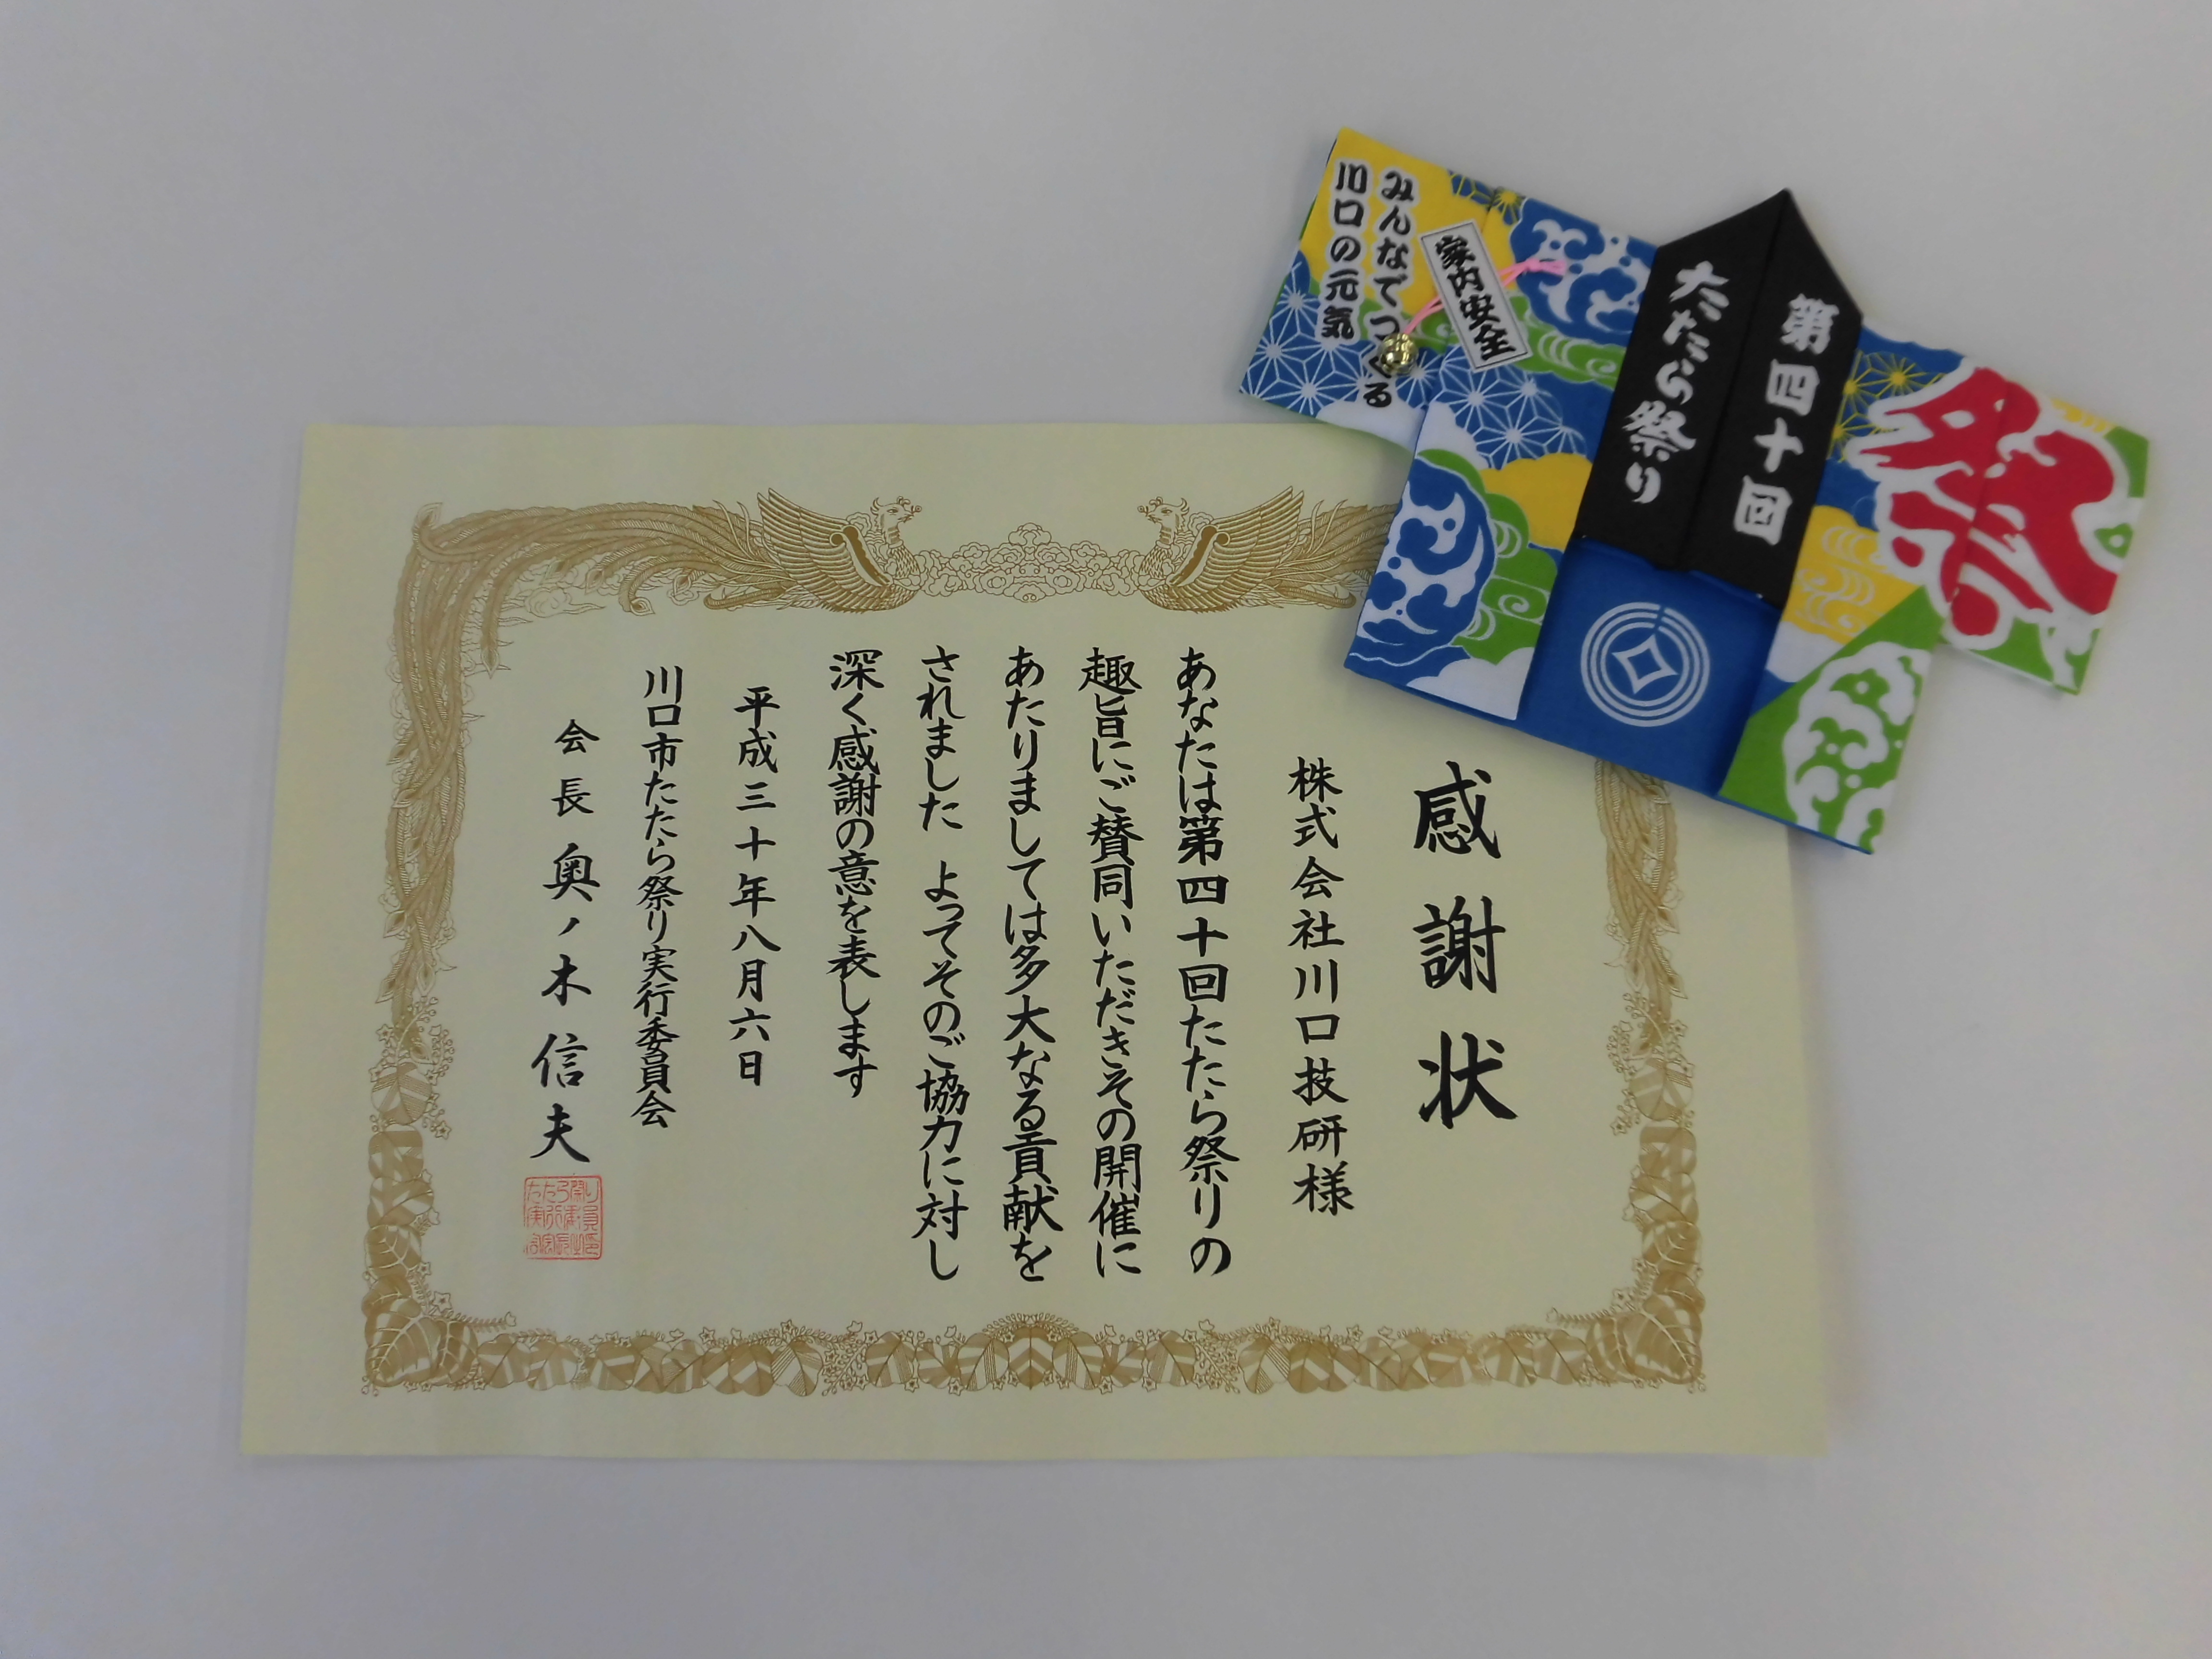 感謝状
株式会社川口技研様
あなたは第四十回たたら祭りの
趣旨にご賛同いただきその開催に
あたりましては多大なる貢献を
されました よってそのご協力に対し
深く感謝の意を表します
平成三十年八月六日
川口市たたら祭り実行委員会
会長 奥ノ木信夫
祭
第四十回
たたら祭り
家内安全
みんなでつくる
川口の元気